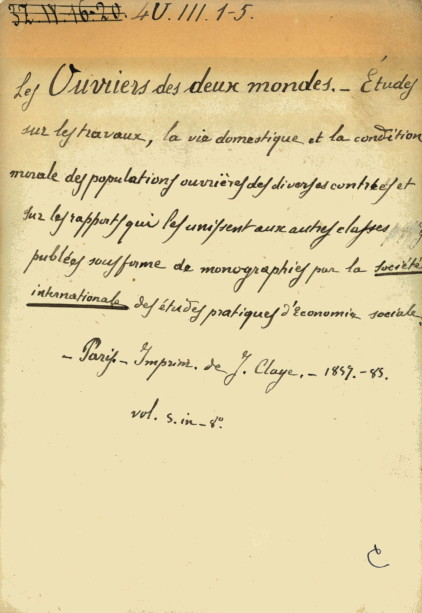 32 II 16-20. 4U. III. 1-5.
Les Ouvriers des deux mondes. - Études
sur les travaux, la vie domestique et la condition
morale des populations ouvrières des diverses contrées et
sur les rapports qui les unissent aux autres classes
publées sous forme de monographies par la société
internationale des études pratiques d'économie sociale.
- Paris. - Imprim. de J. Claye. - 1857.-85.
vol. 5. in-8°
C